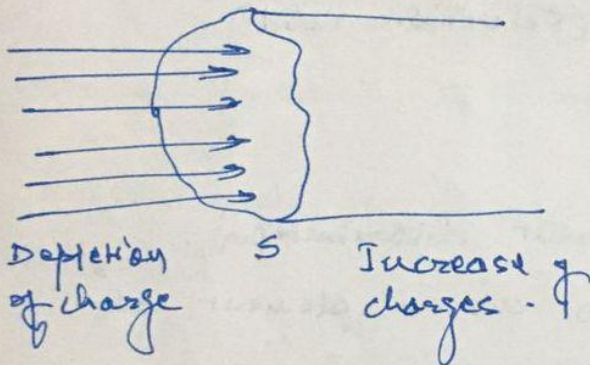 Depletion
of charge
S
Increase of
charges.